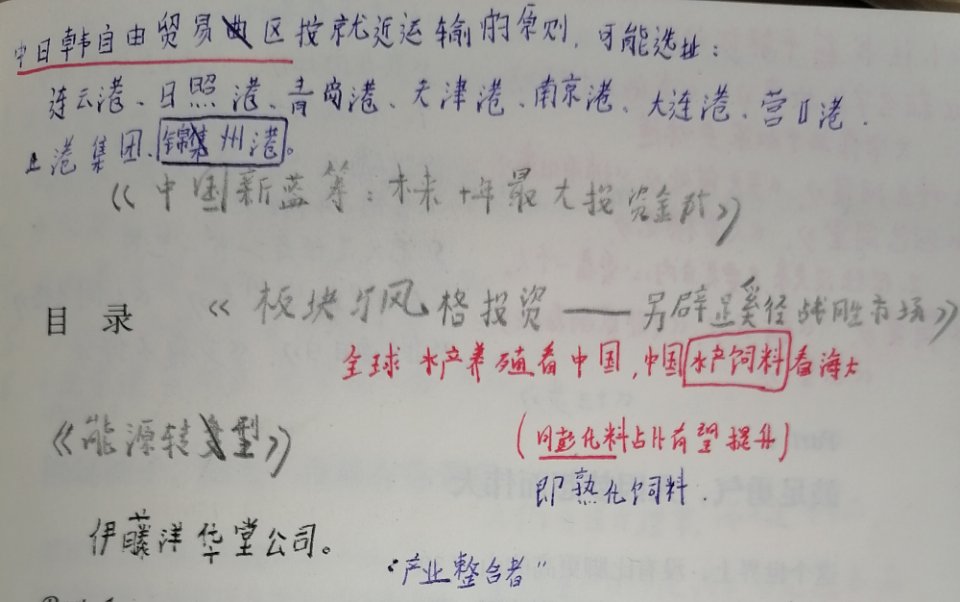 中日韩自由贸易区按就近运输的原则，可能选址：
连云港、日照港、青岛港、天津港、南京港、大连港、营口港、
上港集团、锦州港。
《中国新蓝筹：未来十年最大投资金矿》
目 录
《板块与风格投资——另辟蹊径战胜市场》
全球水产养殖看中国，中国水产饲料看海大
《能源转型》
（膨化料占比有望提升）
即熟化饲料．
伊藤洋华堂公司。
“产业整合者”